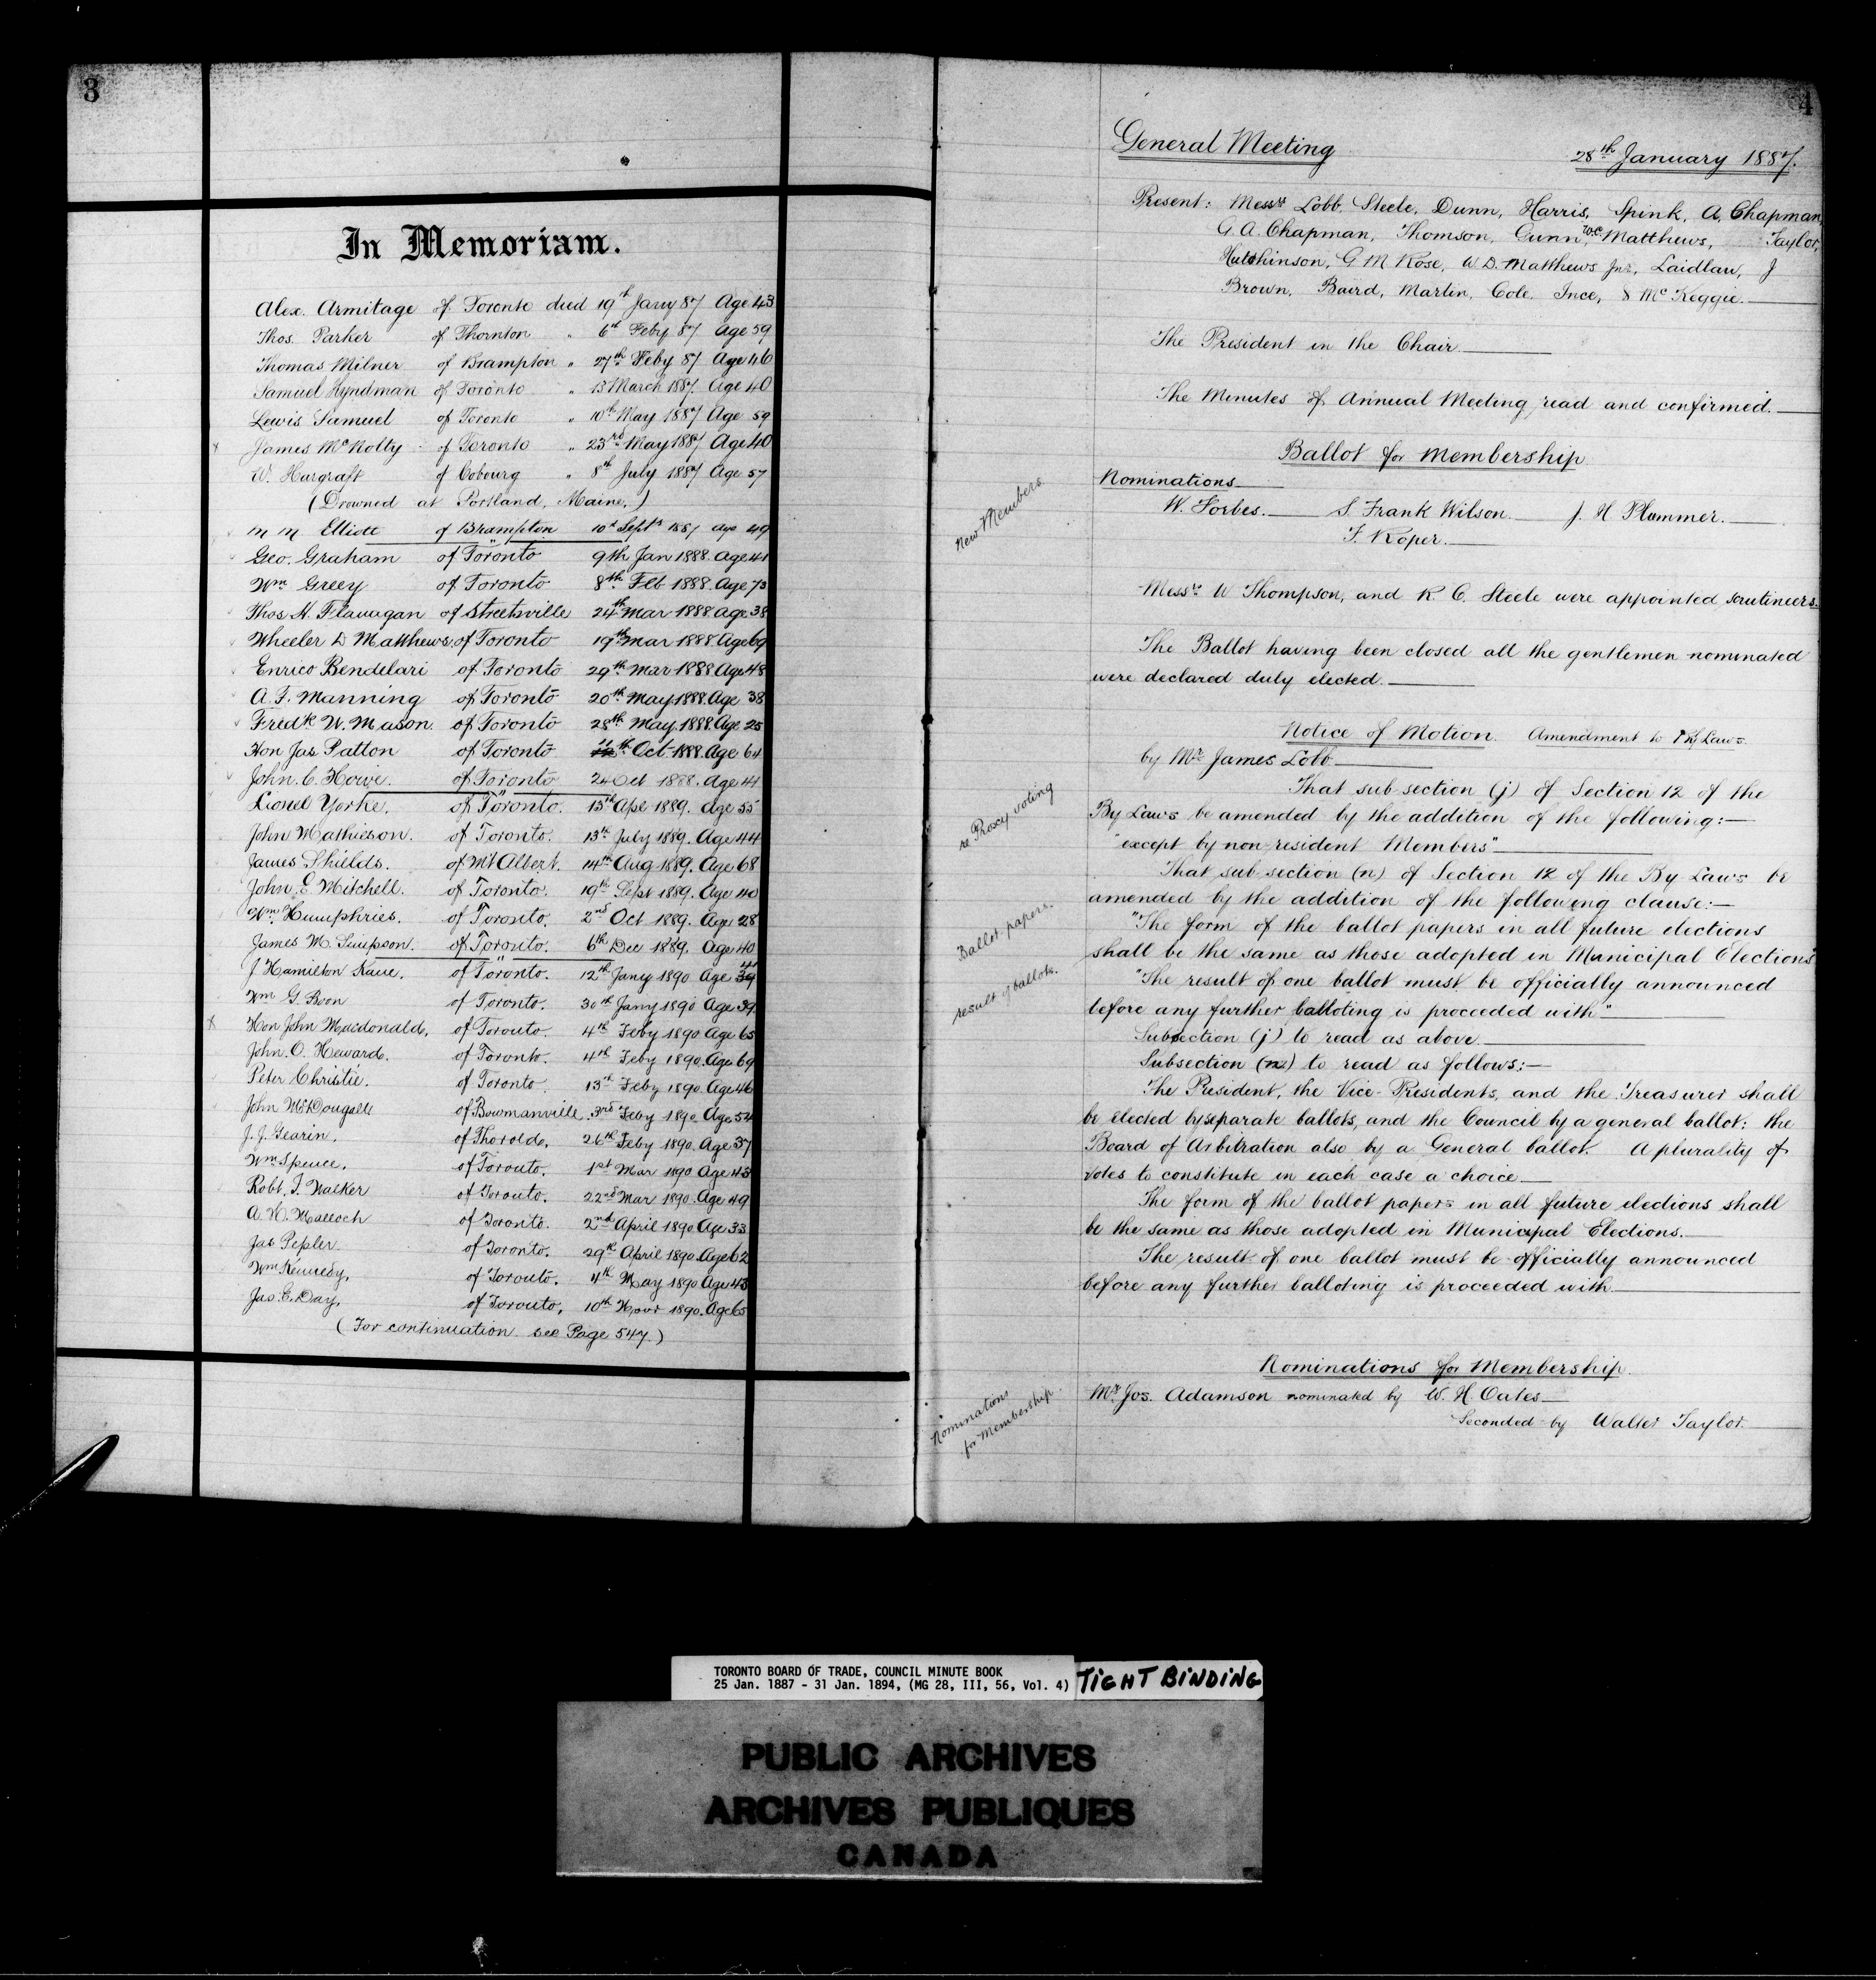 3
In Memoriam.
Alex. Armitage of Toronto died 19th Jany 87 Age 43
Thos. Parker of Thornton " 6th Feby 87 Age 59
Thomas Milner of Brampton " 27th Feby 87 Age 46
Samuel Lyndman of Toronto " 13 March 1887. Age 40
Lewis Samuel of Toronto " 10th May 1887 Age 59
James McNolty of Toronto " 23rd May 1887 Age 40
W. Hargraft of Cobourg " 8th July 1887 Age 57
(Drowned at Portland, Maine.)
M M Elliott of Brampton 10th Septr 1887 age 49
Geo. Graham of Toronto 9th Jan 1888. Age 41
Wm Greey of Toronto 8th Feb 1888. Age 73
Thos. H. Flanagan of Streetsville 24th Mar 1888 age 38
Wheeler D Matthews of Toronto 19th Mar 1888 Age 69
Enrico Bendelari of Toronto 29th Mar 1888 Age 48
A. F. Manning of Toronto 20th May 1888. Age 38
Fredk W. Mason of Toronto 28th May 1888. Age 25
Hon Jas Patton of Toronto 11th Oct 1888. Age 64
John. C. Howie. of Toronto 24 Oct 1888. Age 44
Lionel Yorke. of Toronto. 15th Apl 1889. Age 55
John Mathieson. of Toronto. 13th July 1889. Age 44
James Shields. of Mt Albert. 14th Aug 1889. Age 68
John. E Mitchell. of Toronto. 19th Sept 1889. Age 40
Wm Humphries. of Toronto. 2nd Oct 1889. Age 28
James M. Simpson. of Toronto. 6th Dec 1889. Age 40
J Hamilton Kane. of Toronto. 12th Jany 1890 Age 39 41
Wm G. Boon of Toronto. 30th Jany 1890 Age 39.
Hon John Macdonald, of Toronto. 4th Feby 1890 Age 65
John. O. Heward. of Toronto. 4th Feby 1890. Age 69
Peter Christie. of Toronto. 13th Feby 1890. Age 46
John McDougall of Bowmanville. 3rd Feby 1890. Age 54
J. J. Gearin. of Thorold. 26th Feby 1890. Age 37
Wm Spence. of Toronto. 1st Mar 1890 Age 43
Robt. F. Walker of Toronto. 22nd Mar 1890. Age 49
A. H. Malloch of Toronto. 2nd April 1890 Age 33
Jas Pepler of Toronto. 29th April 1890. Age 62
Wm Kennedy, of Toronto. 4th May 1890 Age 43
Jas. E. Day, of Toronto, 10th Novr 1890. Age 65
(For continuation see Page 547.)
4
General Meeting 28th January 1887.
Present: Messrs Lobb, Steele, Dunn, Harris, Spink, A. Chapman,
G. A. Chapman, Thomson, Gunn, W.C. Matthews, Taylor,
Hutchinson, G. M. Rose, W. D. Matthews Jnr, Laidlaw, J
Brown, Baird, Martin, Cole, Ince, & McKeggie.
The President in the Chair
The Minutes of Annual Meeting read and confirmed.
Ballot for Membership
Nominations
New Members
W. Forbes. S. Frank Wilson. J. H. Plummer.
F. Roper.
Messrs W Thompson, and R. C. Steele were appointed scrutineers.
The Ballot having been closed all the gentlemen nominated
were declared duly elected.
Notice of Motion. Amendment to By Laws.
by Mr James Lobb
re Proxy voting
That sub section (j) of Section 12 of the
By Laws be amended by the addition of the following:—
"except by non-resident Members"
That sub-section (n) of Section 12 of the By Laws be
amended by the addition of the following clause:—
Ballot papers.
"The form of the ballot papers in all future elections
shall be the same as those adopted in Municipal Elections"
result of ballots.
"The result of one ballot must be officially announced
before any further balloting is proceeded with"
Subsection (j) to read as above.
Subsection (n) to read as follows:—
The President, the Vice-Presidents, and the Treasurer shall
be elected by separate ballots, and the Council by a general ballot; the
Board of Arbitration also by a General ballot. A plurality of
votes to constitute in each case a choice
The form of the ballot papers in all future elections shall
be the same as those adopted in Municipal Elections.
The result of one ballot must be officially announced
before any further balloting is proceeded with.
Nominations for Membership.
Nominations
for Membership.
Mr Jos. Adamson nominated by W. H. Oates
Seconded by Walter Taylor.
TORONTO BOARD OF TRADE, COUNCIL MINUTE BOOK
25 Jan. 1887 - 31 Jan. 1894, (MG 28, III, 56, Vol. 4)
TIGHT BINDING
PUBLIC ARCHIVES
ARCHIVES PUBLIQUES
CANADA